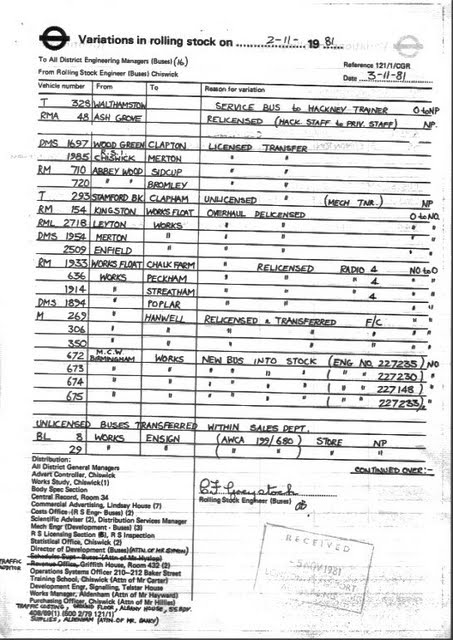 Variations in rolling stock on 2-11- 1981
To All District Engineering Managers (Buses) (16)
Reference 121/1/CGR
From Rolling Stock Engineer (Buses) Chiswick
Date 3-11-81
Vehicle number From To Reason for variation
T 328 WALTHAMSTOW SERVICE BUS to HACKNEY TRAINER O to NP
RMA 48 ASH GROVE RELICENSED (HACK. STAFF to PRIV. STAFF) NP.
DMS 1697 WOOD GREEN CLAPTON LICENSED TRANSFER
1985 R.S. CHISWICK MERTON " "
RM 710 ABBEY WOOD SIDCUP " "
720 " " BROMLEY " "
T 293 STAMFORD BK CLAPHAM UNLICENSED " (MECH TNR.) NP
RM 154 KINGSTON WORKS FLOAT OVERHAUL DELICENSED O to NO.
RML 2718 LEYTON WORKS " " " "
DMS 1954 MERTON " " " " "
2509 ENFIELD " " " " "
RM 1933 WORKS FLOAT CHALK FARM " RELICENSED RADIO 4 NO to O
636 WORKS PECKHAM " " " 4 " "
1914 " STREATHAM " " 4 " "
DMS 1894 " POPLAR " " " "
M 269 " HANWELL RELICENSED & TRANSFERRED F/C " "
306 " " " " " " "
350 " " " " " " "
672 M.C.W. BIRMINGHAM WORKS NEW BDS INTO STOCK (ENG NO. 227235) NO
673 " " " " " " ( " " 227230) "
674 " " " " " " ( " " 227148) "
675 " " " " " " ( " " 227233) "
UNLICENSED BUSES TRANSFERRED WITHIN SALES DEPT.
BL 8 WORKS ENSIGN (AWCA 199/680) STORE NP
29 " " ( " " ) " "
CONTINUED OVER:-
Distribution:
All District General Managers
Advert Controller, Chiswick
Works Study, Chiswick (1)
Body Spec Section
Central Record, Room 34
Commercial Advertising, Lindsay House (7)
Costs Office (R S Engr- Buses) (2)
Rolling Stock Engineer (Buses)
Scientific Adviser (2), Distribution Services Manager
Mech Engr (Development - Buses) (3)
R S Licensing Section (6), R S Inspection
Statistical Office, Chiswick (2)
Director of Development (Buses) (ATTN. OF MR.
Schedules Supt - Buses (Attn of Mr
TRAFFIC AUDITOR Revenue Office, Griffith House, Room 432 (2)
Operations Systems Officer 210-212 Baker Street
Training School, Chiswick (Attn of Mr Carter)
Development Engr, Signalling, Telstar House
Works Manager, Aldenham (Attn of Mr Hayward)
Purchasing Officer, Chiswick (Attn of Mr Hillies)
TRAFFIC COSTING, GROUND FLOOR, ALBANY HOUSE, 55 BDY.
408/69(1) (500 2/79 121/1)
SUPPLIES, ALDENHAM (ATTN. OF MR.
RECEIVED
5 NOV 1981